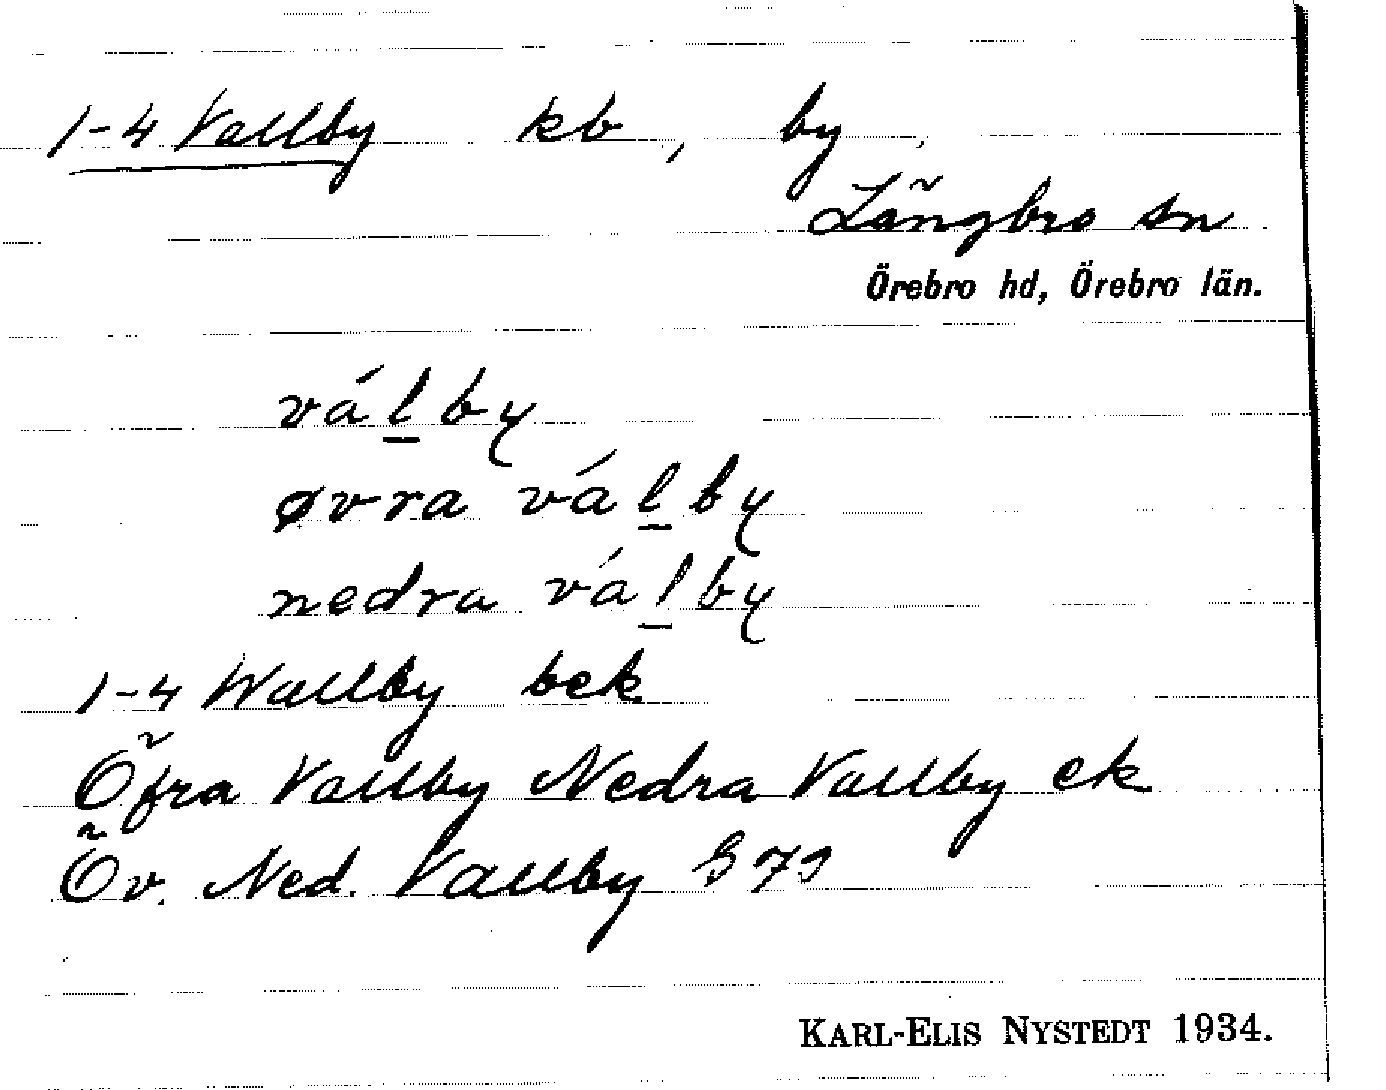 1-4 Vallby kb, by,
Långbro sn
Örebro hd, Örebro län.
válby
øvra válby
nedra válby
1-4 Wallby bek
Öfra Vallby Nedra Vallby ek
Öv. Ned. Vallby
KARL-ELIS NYSTEDT 1934.